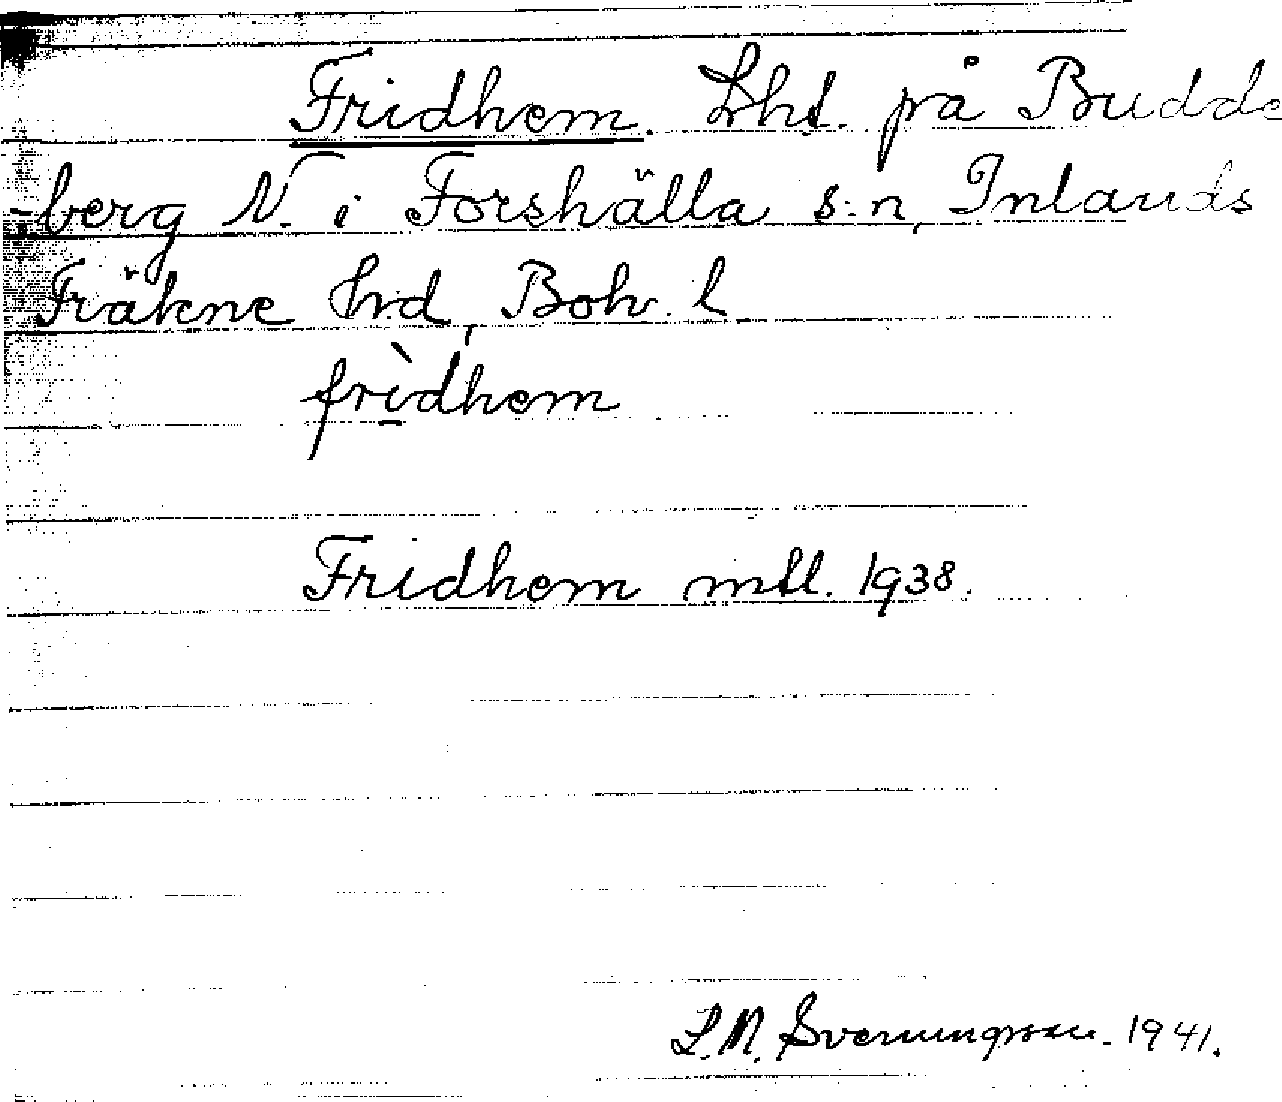 Fridhem. Lht. på Budde
-berg N. i Forshälla s:n, Inlands
Fräkne hrd, Boh. l
frìdhem
Fridhem mtl. 1938.
L.N. Svenungsson. 1941.